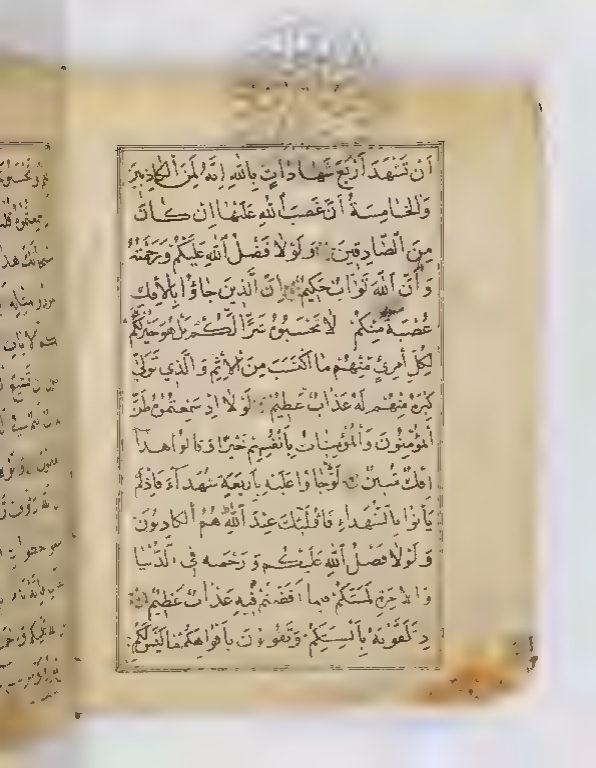 أَنْ تَشْهَدَ أَرْبَعَ شَهَادَاتٍ بِاللهِ إِنَّهُ لَمِنَ الْكَاذِبِينَ
وَالْخَامِسَةُ أَنَّ غَضَبَ اللهِ عَلَيْهَا إِنْ كَانَ
مِنَ الصَّادِقِينَ وَلَوْلَا فَضْلُ اللهِ عَلَيْكُمْ وَرَحْمَتُهُ
وَأَنَّ اللهَ تَوَّابٌ حَكِيمٌ إِنَّ الَّذِينَ جَاؤُا بِالْإِفْكِ
عُصْبَةٌ مِنْكُمْ لَا تَحْسَبُوهُ شَرًّا لَكُمْ بَلْ هُوَ خَيْرٌ لَكُمْ
لِكُلِّ امْرِئٍ مِنْهُمْ مَا اكْتَسَبَ مِنَ الْإِثْمِ وَالَّذِي تَوَلَّى
كِبْرَهُ مِنْهُمْ لَهُ عَذَابٌ عَظِيمٌ لَوْلَا إِذْ سَمِعْتُمُوهُ ظَنَّ
الْمُؤْمِنُونَ وَالْمُؤْمِنَاتُ بِأَنْفُسِهِمْ خَيْرًا وَقَالُوا هَذَا
إِفْكٌ مُبِينٌ لَوْلَا جَاؤُا عَلَيْهِ بِأَرْبَعَةِ شُهَدَاءَ فَإِذْ لَمْ
يَأْتُوا بِالشُّهَدَاءِ فَأُولَئِكَ عِنْدَ اللهِ هُمُ الْكَاذِبُونَ
وَلَوْلَا فَضْلُ اللهِ عَلَيْكُمْ وَرَحْمَتُهُ فِي الدُّنْيَا
وَالْآخِرَةِ لَمَسَّكُمْ فِيمَا أَفَضْتُمْ فِيهِ عَذَابٌ عَظِيمٌ
إِذْ تَلَقَّوْنَهُ بِأَلْسِنَتِكُمْ وَتَقُولُونَ بِأَفْوَاهِكُمْ مَا لَيْسَ لَكُمْ